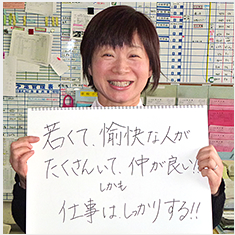 若くて、愉快な人が
たくさんいて、仲が良い!!
しかも
仕事は、しっかりする!!